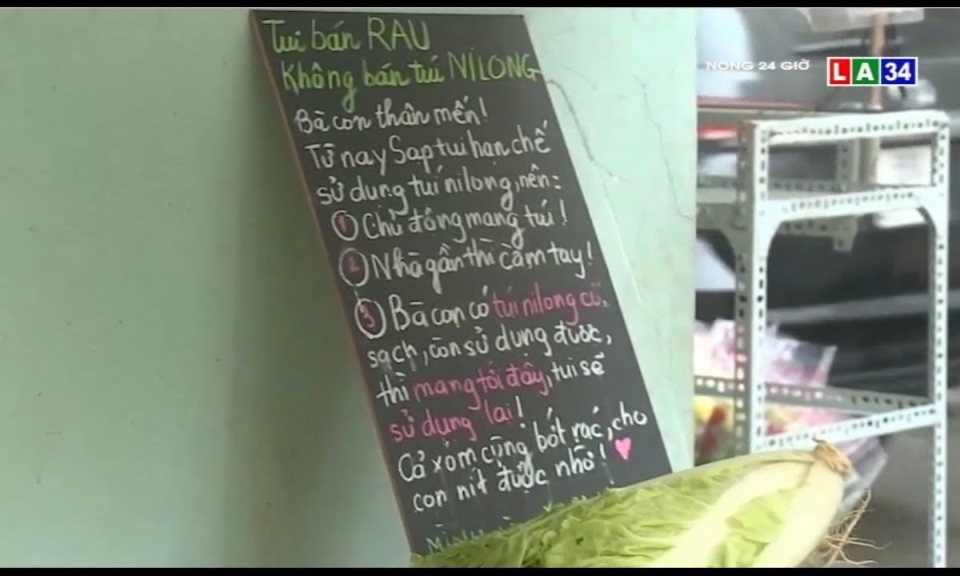 Tui bán RAU
Không bán túi NILONG
Bà con thân mến!
Từ nay Sạp tui hạn chế
sử dụng túi nilong, nên:
① Chủ động mang túi!
② Nhà gần thì cầm tay!
③ Bà con có túi nilong cũ,
sạch, còn sử dụng được,
thì mang tới đây, tui sẽ
sử dụng lại!
Cả xóm cùng bớt rác, cho
con nít được nhờ! ♥
NÓNG 24 GIỜ
LA34